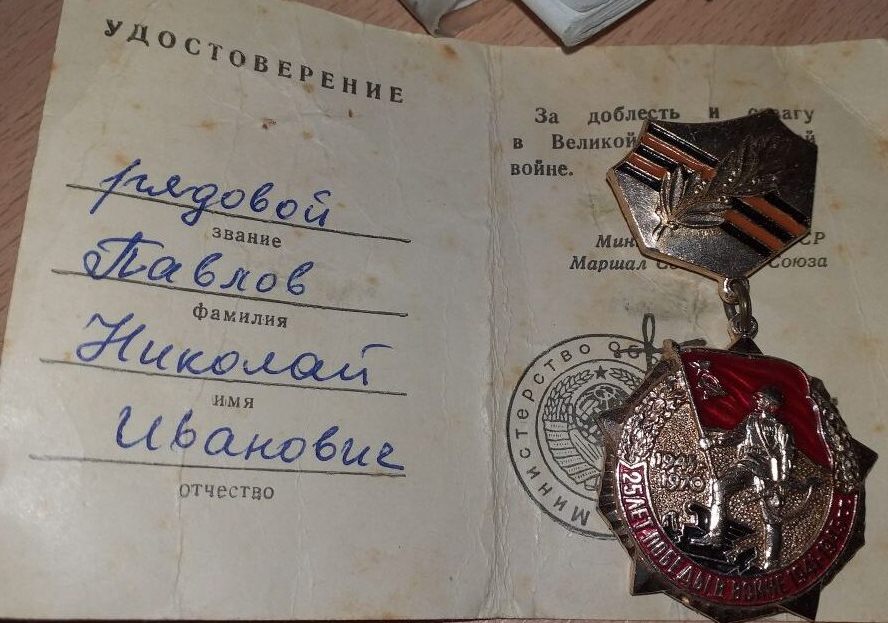 УДОСТОВЕРЕНИЕ
рядовой
звание
Павлов
фамилия
Николай
имя
Иванович
отчество
За доблесть и
в Великой
войне.
Маршал Союза
Министерство
1945
1970
25 ЛЕТ ПОБЕДЫ В ВОЙНЕ 1941-1945 гг